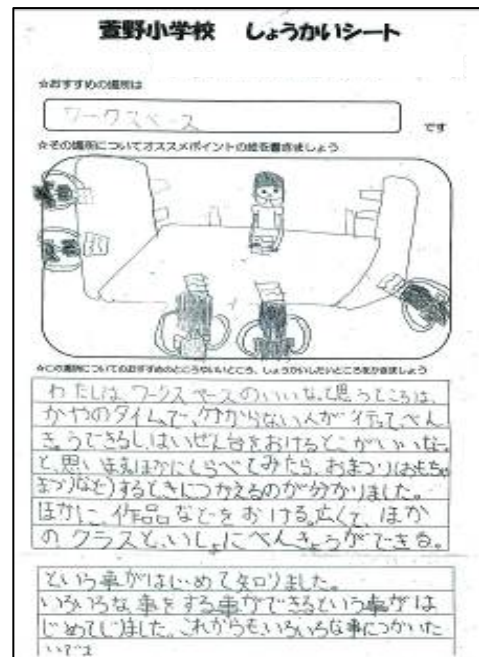 萱野小学校　しょうかいシート
☆おすすめの場所は
ワークスペース
です
☆その場所についてオススメポイントの絵を書きましょう
☆この場所についてのおすすめのところやいいところ、しょうかいしたいところをかきましょう
わたしは、ワークスペースのいいなと思うところは、
かやのタイムで、分からない人が行って、べん
きょうできるし、はいぜん台をおけるとこがいいな
と、思います。ほかにしらべてみたら、おまつり(おもちゃ
まつりなど)するときにつかえるのが分かりました。
ほかに、作品などをおける。広くて、ほか
の、クラスと、いっしょにべんきょうができる。
という事がはじめて知りました。
いろいろな事をする事ができるという事がは
じめてしりました。これからもいろいろな事につかいた
いです